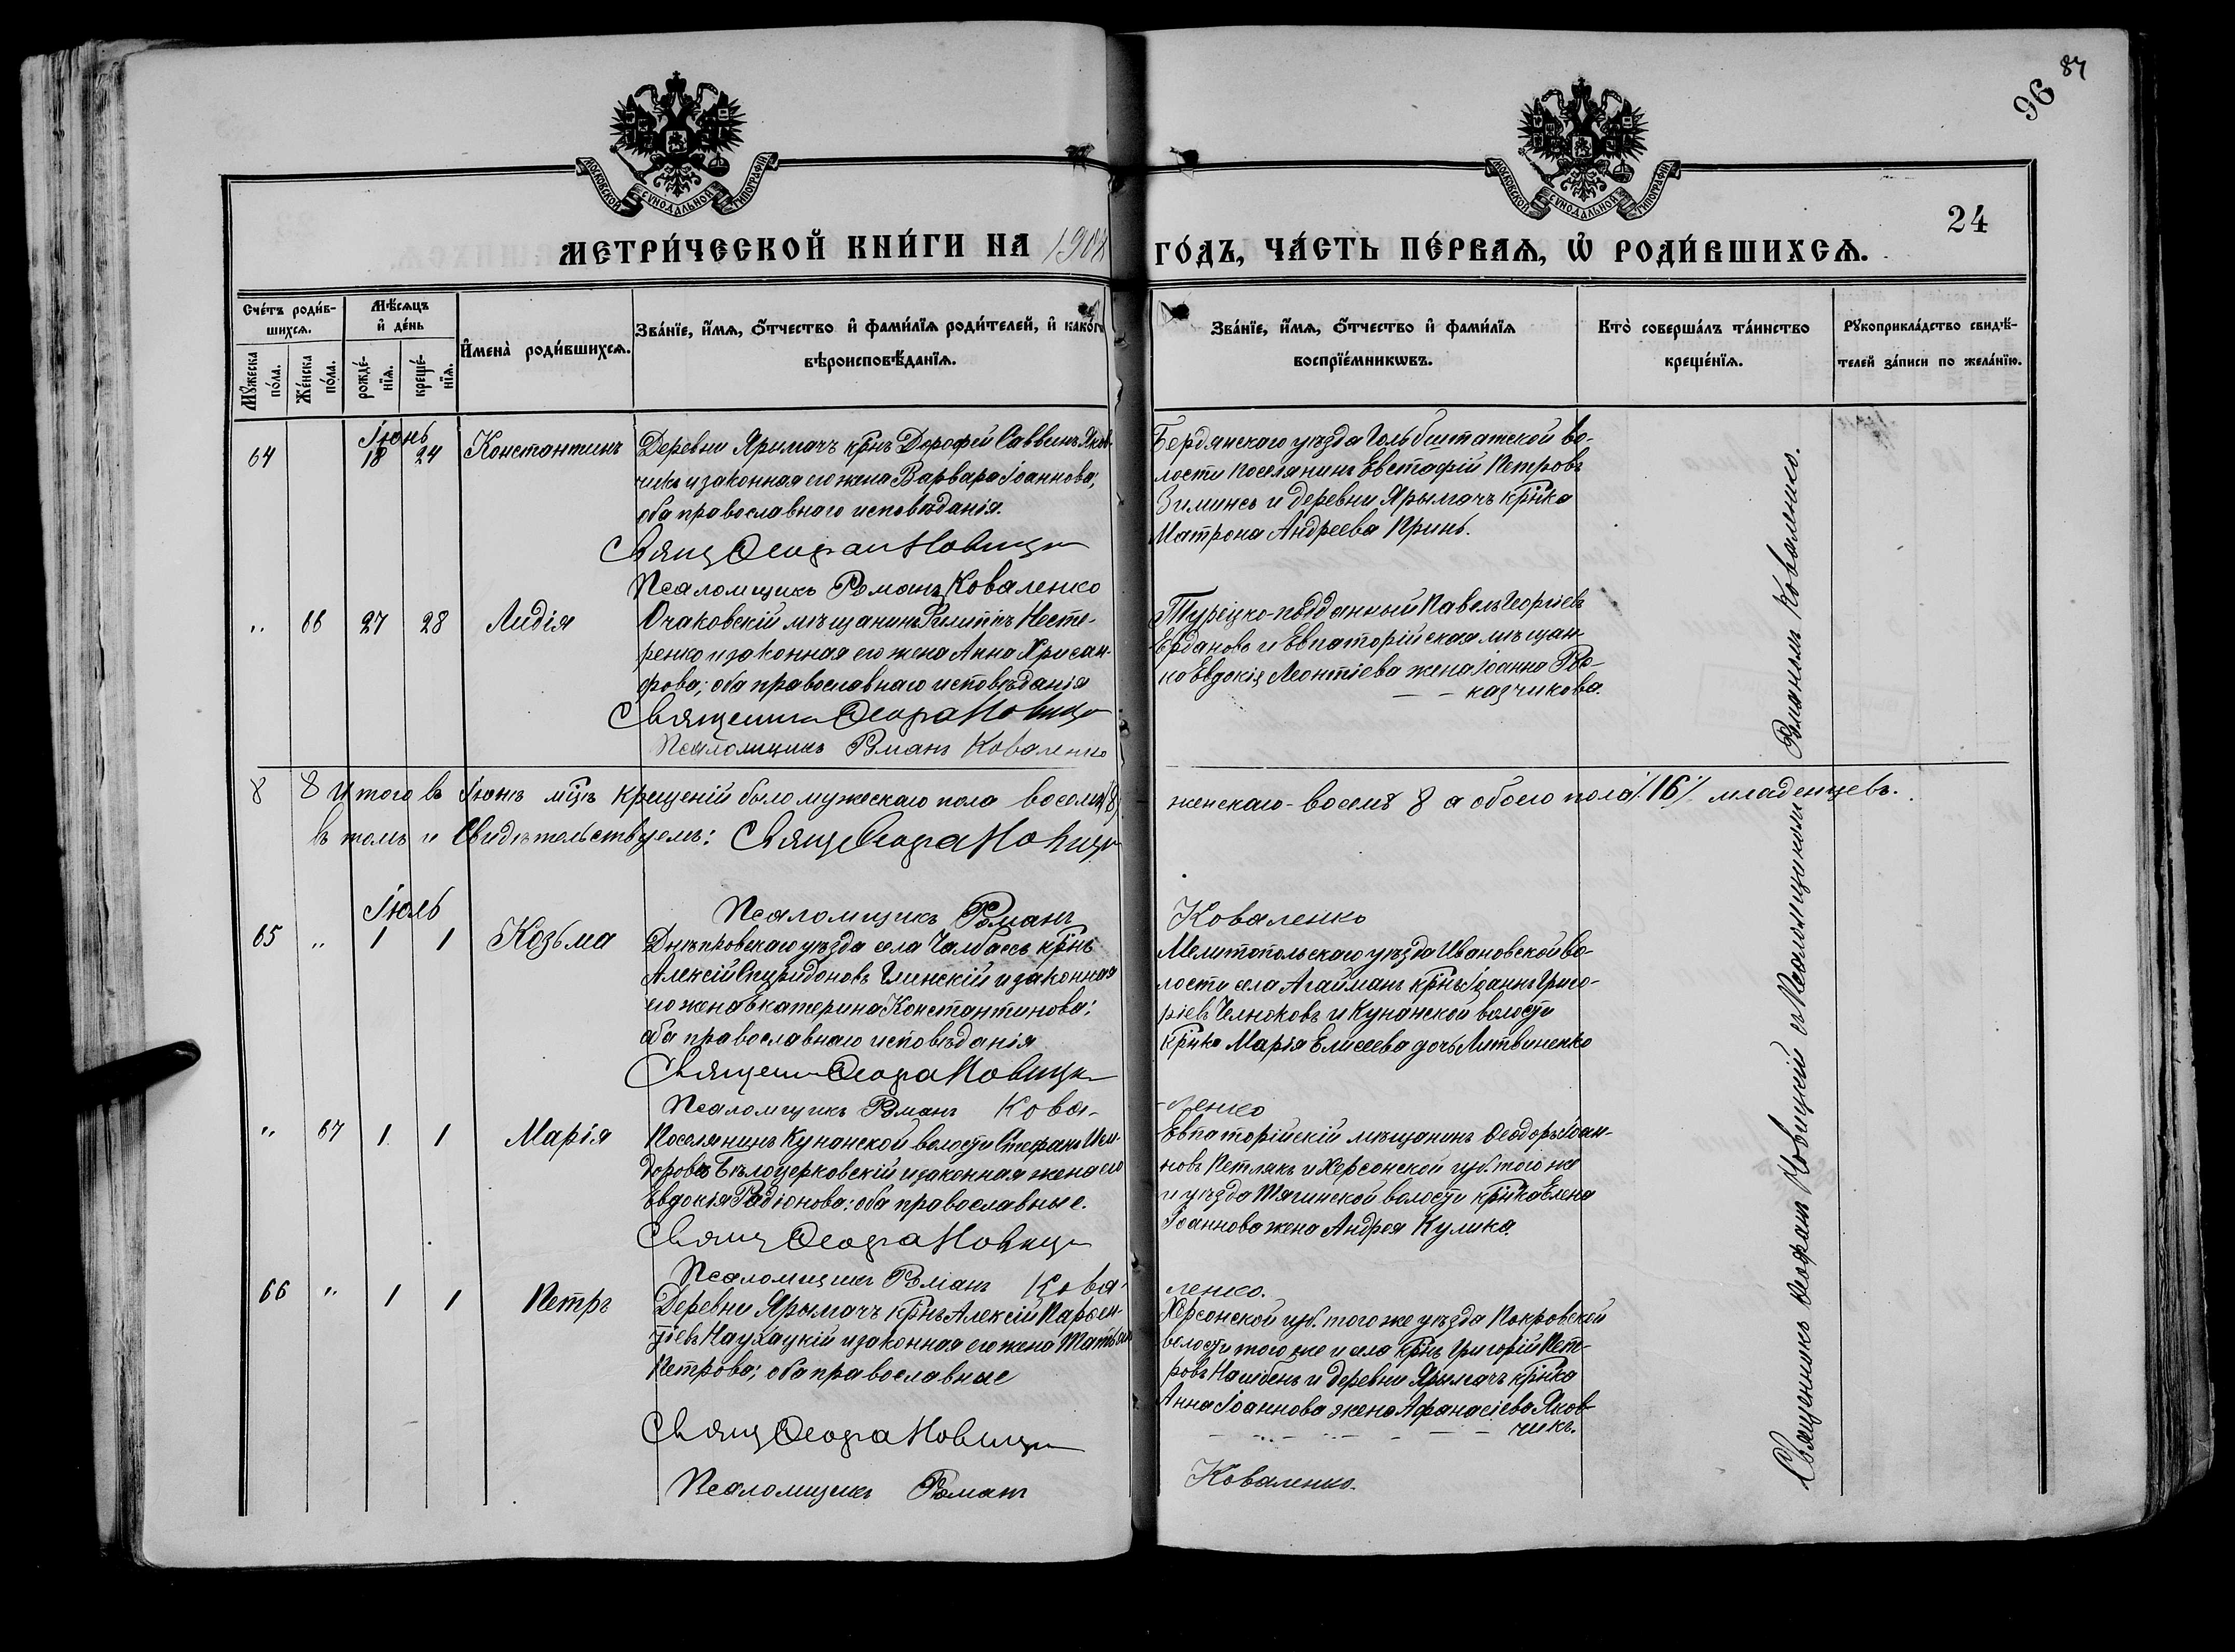 87
96
МОСКОВСКОЙ СУНОДАЛЬНОЙ ТИПОГРАФІИ
МОСКОВСКОЙ СУНОДАЛЬНОЙ ТИПОГРАФІИ
24
МЕТРИ́ЧЕСКОЙ КНИ́ГИ НА 1904 ГО́ДЪ, ЧА́СТЬ ПЕ́РВАЯ, Ѡ РОДИ́ВШИХСЯ.
Сче́тъ роди́в-
шихся.
Мꙋ́жеска по́ла.
Же́нска по́ла.
Мѣ́сяцъ
и де́нь
рожде́-
нїя.
креще́-
нїя.
Имена̀ роди́вшихся.
Зва́нїе, и́мя, о́тчество и фами́лїя роди́телей, и како́гѡ
вѣроисповѣ́данїя.
Зва́нїе, и́мя, о́тчество и фами́лїя
воспрїе́мникѡвъ.
Кто̀ соверша́лъ та́инство
креще́нїя.
Рꙋкоприкла́дство свидѣ́-
телей за́писи по жела́нїю.
Іюнь
64 18 24 Константинъ
Деревни Ярымачъ крнъ Дорофей Саввинъ Яков-
чикъ и законная его жена Варвара Іоаннова,
оба православнаго исповѣданія.
Свящ Ѳеофан Новицки
Псаломщикъ Романъ Коваленко
Бердянскаго уѣзда Гольбштатской во-
лости поселянинъ Евстафій Петровъ
Зиминсъ и деревни Ярымачъ крнка
Матрона Андреева Принь.
" 66 27 28 Лидія
Очаковскій мѣщанинъ Филиппъ Несте-
ренко и законная его жена Анна Хрисан-
фова; оба православнаго исповѣданія
Священник Ѳеофа Новицки
Псаломщикъ Романъ Коваленко
Турецко-подданный Павелъ Георгіевъ
Ердановъ и Евпаторійская мѣщан-
ка Евдокія Леонтіева жена Іоанна Ро-
казчикова.
8 8 Итого въ Іюнѣ мцѣ крещеній было мужескаго пола восемь (8) женскаго - восемь 8 а обоего пола ./. 16 ./. младенцевъ.
въ томъ и Свидѣтельствуемъ: Свящ Ѳеофа Новицки
Псаломщикъ Романъ Коваленко
Іюль
65 " 1 1 Козьма
Днѣпровскаго уѣзда села Чалбассъ крнъ
Алексій Спиридоновъ Глинскій и законная
его жена Екатерина Константинова;
оба православнаго исповѣданія
Священ Ѳеофа Новицки
Псаломщикъ Романъ Кова-
ленко
Мелитопольскаго уѣзда Ивановской во-
лости села Агайманъ крнъ Іоаннъ Григо-
ріевъ Челноковъ и Кунанской волости
крнка Марія Елисеева дочь Литвиненко
" 67 1 1 Марія
Поселянинъ Кунанской волости Стефанъ Иси-
доровъ Бѣлоцерковскій и законная жена его
Евдокія Родіонова; оба православные.
Свящ Ѳеофа Новицки
Псаломщикъ Романъ Кова-
ленко.
Евпаторійскій мѣщанинъ Ѳеодоръ Іоан-
новъ Петлякъ и Херсонской губ. того же
и уѣзда Тягинской волости крнка Елена
Іоаннова жена Андрея Кулика.
66 " 1 1 Петръ
Деревни Ярымачъ крнъ Алексій Парѳен-
тіевъ Наухацкій и законная его жена Татьяна
Петрова; оба православные
Свящ Ѳеофа Новицки
Псаломщикъ Романъ Коваленко.
Херсонской губ. того же уѣзда Покровской
волости того же и села крнъ Григорій Пет-
ровъ Нашбенъ и деревни Ярымачъ крнка
Анна Іоаннова жена Афанасіева Яков-
чикъ.
Священникъ Ѳеофанъ Новицкій съ Псаломщикомъ Романомъ Коваленко.